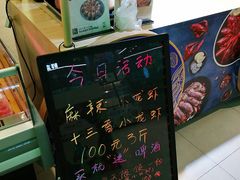 今日活动
麻辣小龙虾
十三香小龙虾
100元3斤
买就"送"啤酒